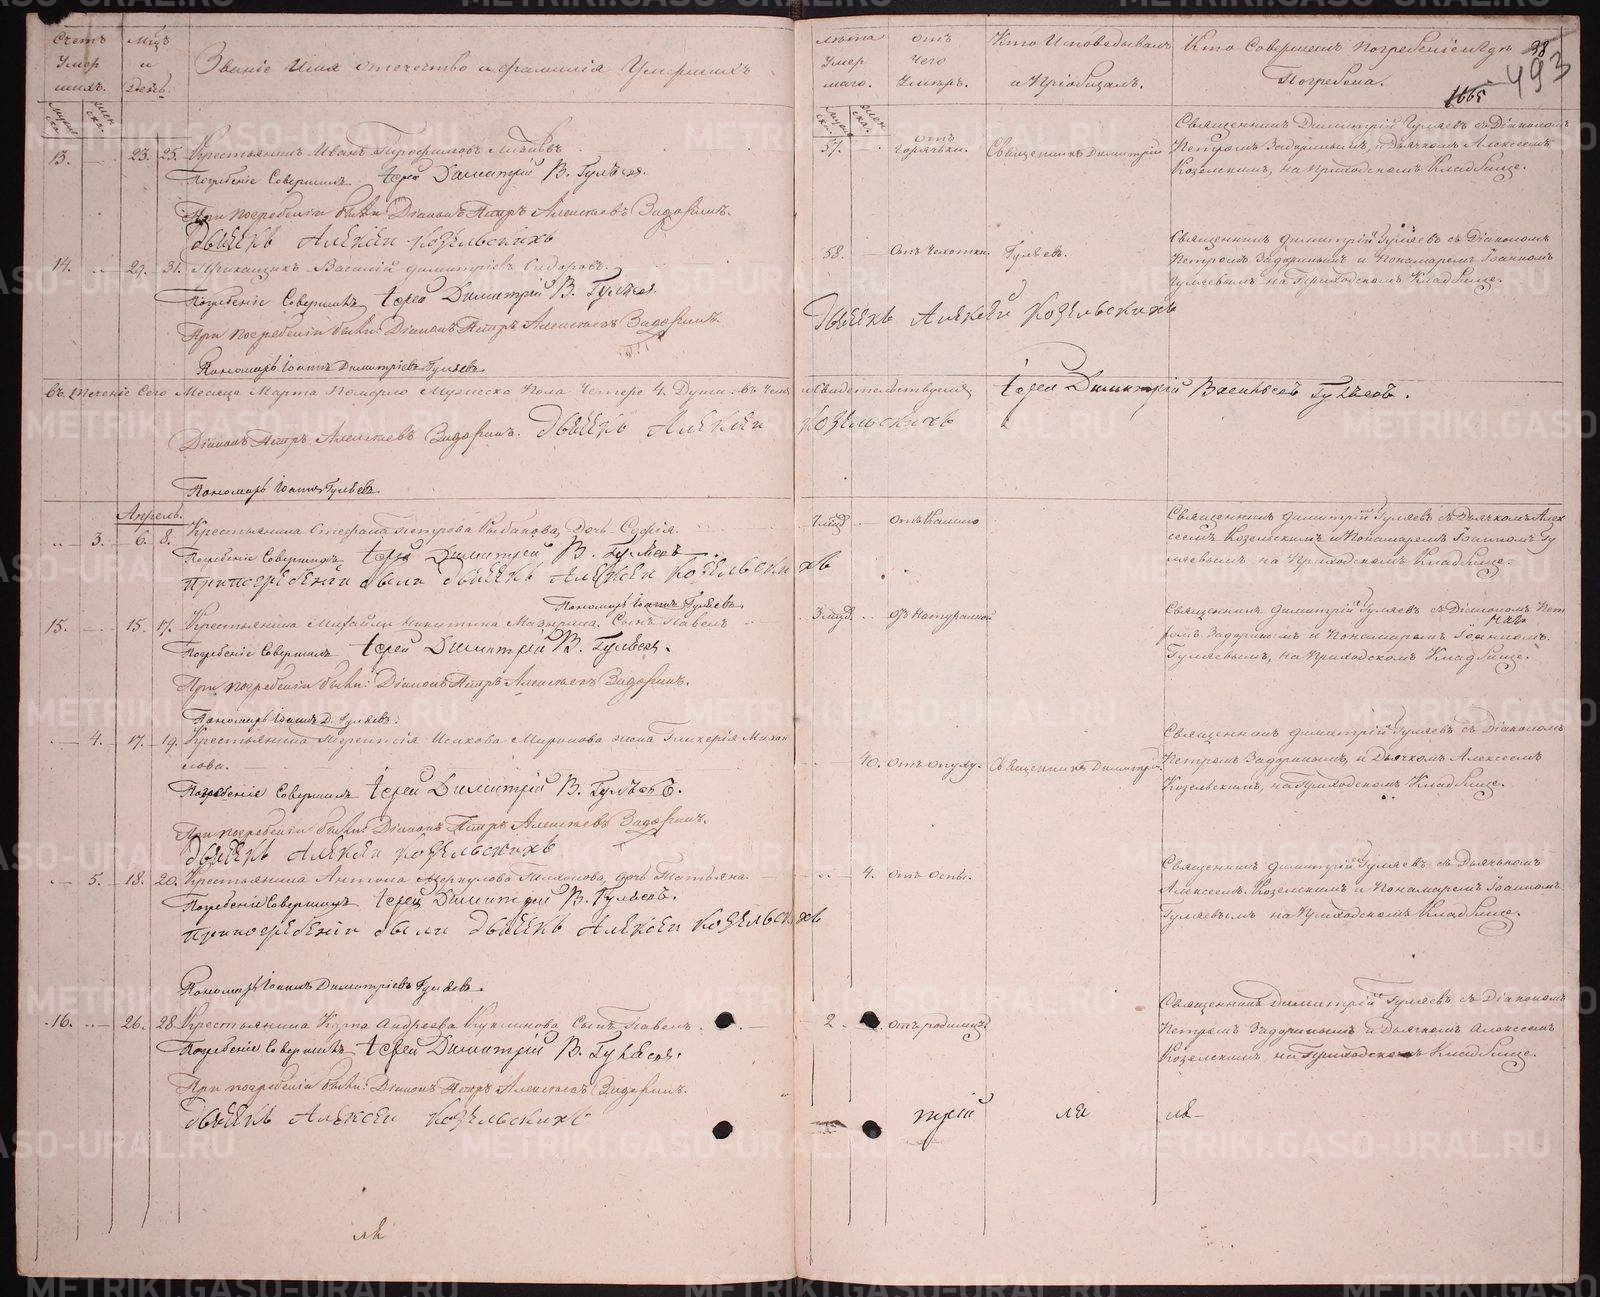 Счетъ Умершихъ.
Мцъ и День.
Званіе Имя отечество и фамилія Умершихъ
Лѣта Умершаго.
отъ чего Умеръ.
Кто Исповѣдывалъ и Пріобщалъ.
Кто Совершалъ Погребеніе и гдѣ Погребена.
98
493
13. 23. 25. Крестьянинъ Иванъ
57. отъ горячьки. Священникъ Димитрій
Священникъ Димитрій Гуляевъ съ Діакономъ
Петромъ Задоринымъ, и Дьячкомъ Алексеемъ
Козельскимъ, на Приходскомъ Кладбище.
Погребеніе Совершилъ Іерей Димитрій В. Гуляевъ.
При погребеніи были: Діаконъ Петръ Алексеевъ Задоринъ.
Дьячекъ Алексеи Козельскихъ
14. 29. 31. Приказщикъ Василій Димитріевъ Сидоровъ.
58. Отъ Чехотки. Гуляевъ.
Священникъ Димитрій Гуляевъ съ Діакономъ
Петромъ Задоринымъ и Пономаремъ Іоанномъ
Гуляевымъ на Приходскомъ Кладбище.
Погребеніе Совершилъ Іерей Димитрій В. Гуляевъ.
Дьячекъ Алексеи Козельскихъ
При погребеніи были: Діаконъ Петръ Алексеевъ Задоринъ.
Пономарь Іоаннъ Димитріевъ Гуляевъ
Въ теченіе Сего Месяца Марта Померло Мужеска Пола Четере 4. Души. въ чемъ и Свидетельствуемъ Іерей Димитрій Васильевъ Гуляевъ.
Діаконъ Петръ Алексеевъ Задоринъ. Дьячекъ Алексеи Козельскихъ
Пономарь Іоаннъ Гуляевъ
Апрель.
3. 6. 8. Крестьянина Стефана Петрова Рыбакова, Дочь Софія.
1 мцъ. отъ Кашлю
Священникъ Димитрій Гуляевъ съ Дьячкомъ Алек
сеемъ Козельскимъ и Пономаремъ Іоанномъ Гу
ляевымъ на Приходскомъ Кладбище.
Погребеніе Совершилъ Іерей Димитрій В. Гуляевъ.
При погребеніи были Дьячекъ Алексеи Козельскихъ
Пономарь Іоаннъ Гуляевъ.
15. 15. 17. Крестьянина Михайла Никитина Мазырина. Сынъ Павелъ
3 мцъ. отъ натуральной
Священникъ Димитрій Гуляевъ съ Діакономъ Пет
ромъ Задоринымъ и Пономаремъ Іоанномъ
Гуляевымъ, на Приходскомъ Кладбище.
Погребеніе Совершилъ Іерей Димитрій В. Гуляевъ.
При погребеніи были: Діаконъ Петръ Алексеевъ Задоринъ.
Пономарь Іоаннъ Д. Гуляевъ.
4. 17. 19. Крестьянина Терентія Исакова Миронова жена Гликерія Михай
лова.
40. отъ опуху. Священникъ Димитрій
Священникъ Димитрій Гуляевъ съ Діакономъ
Петромъ Задоринымъ, и Дьячкомъ Алексеемъ
Козельскимъ, на Приходскомъ Кладбище.
Погребеніе Совершилъ Іерей Димитрій В. Гуляевъ.
При погребеніи были: Діаконъ Петръ Алексеевъ Задоринъ.
Дьячекъ Алексеи Козельскихъ
5. 18. 20. Крестьянина Антона Меркулова Тихонова, дочь Татьяна.
4. отъ оспы.
Священникъ Димитрій Гуляевъ съ Дьячкомъ
Алексеемъ Козельскимъ и Пономаремъ Іоанномъ
Гуляевымъ на Приходскомъ Кладбище.
Погребеніе Совершилъ Іерей Димитрій В. Гуляевъ.
При погребеніи были Дьячекъ Алексеи Козельскихъ
Пономарь Іоаннъ Димитріевъ Гуляевъ
16. 26. 28. Крестьянина Карпа Андреева Куклинова Сынъ Павелъ.
2. отъ родимца
Священникъ Димитрій Гуляевъ съ Діакономъ
Петромъ Задоринымъ и Дьячкомъ Алексеемъ
Козельскимъ на Приходскомъ Кладбище.
Погребеніе Совершилъ Іерей Димитрій В. Гуляевъ.
При погребеніи были: Діаконъ Петръ Алексеевъ Задоринъ.
Дьячекъ Алексеи Козельскихъ
трій
METRIKI.GASO-URAL.RU